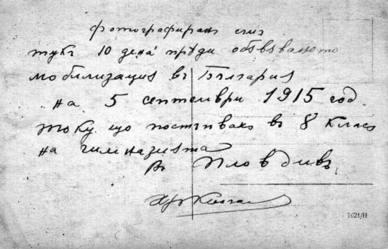 фотографиранъ съмъ
тукъ 10 дена прѣди обявяването
мобилизация въ България
на 5 септемврий 1915 год.
току що постѫпвахъ въ 8 класъ
на гимназията
въ Пловдивъ